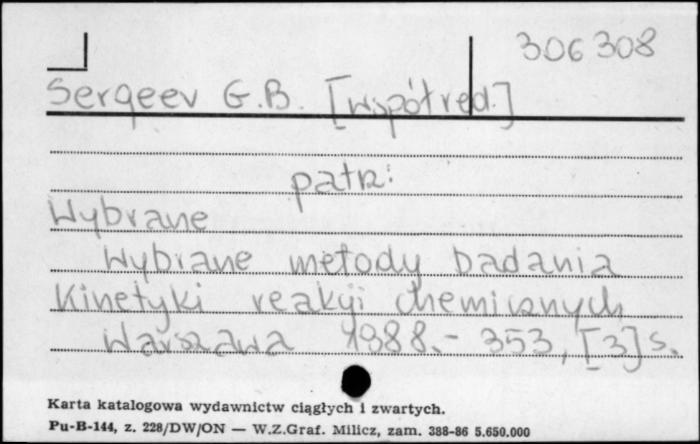 306308
Sergeev G.B. [współred.]
patrz:
Wybrane
Wybrane metody badania
kinetyki reakcji chemicznych
Warszawa 1988.- 353, [3] s.
Karta katalogowa wydawnictw ciągłych i zwartych.
Pu-B-144, z. 228/DW/ON — W.Z.Graf. Milicz, zam. 388-86 5.650.000